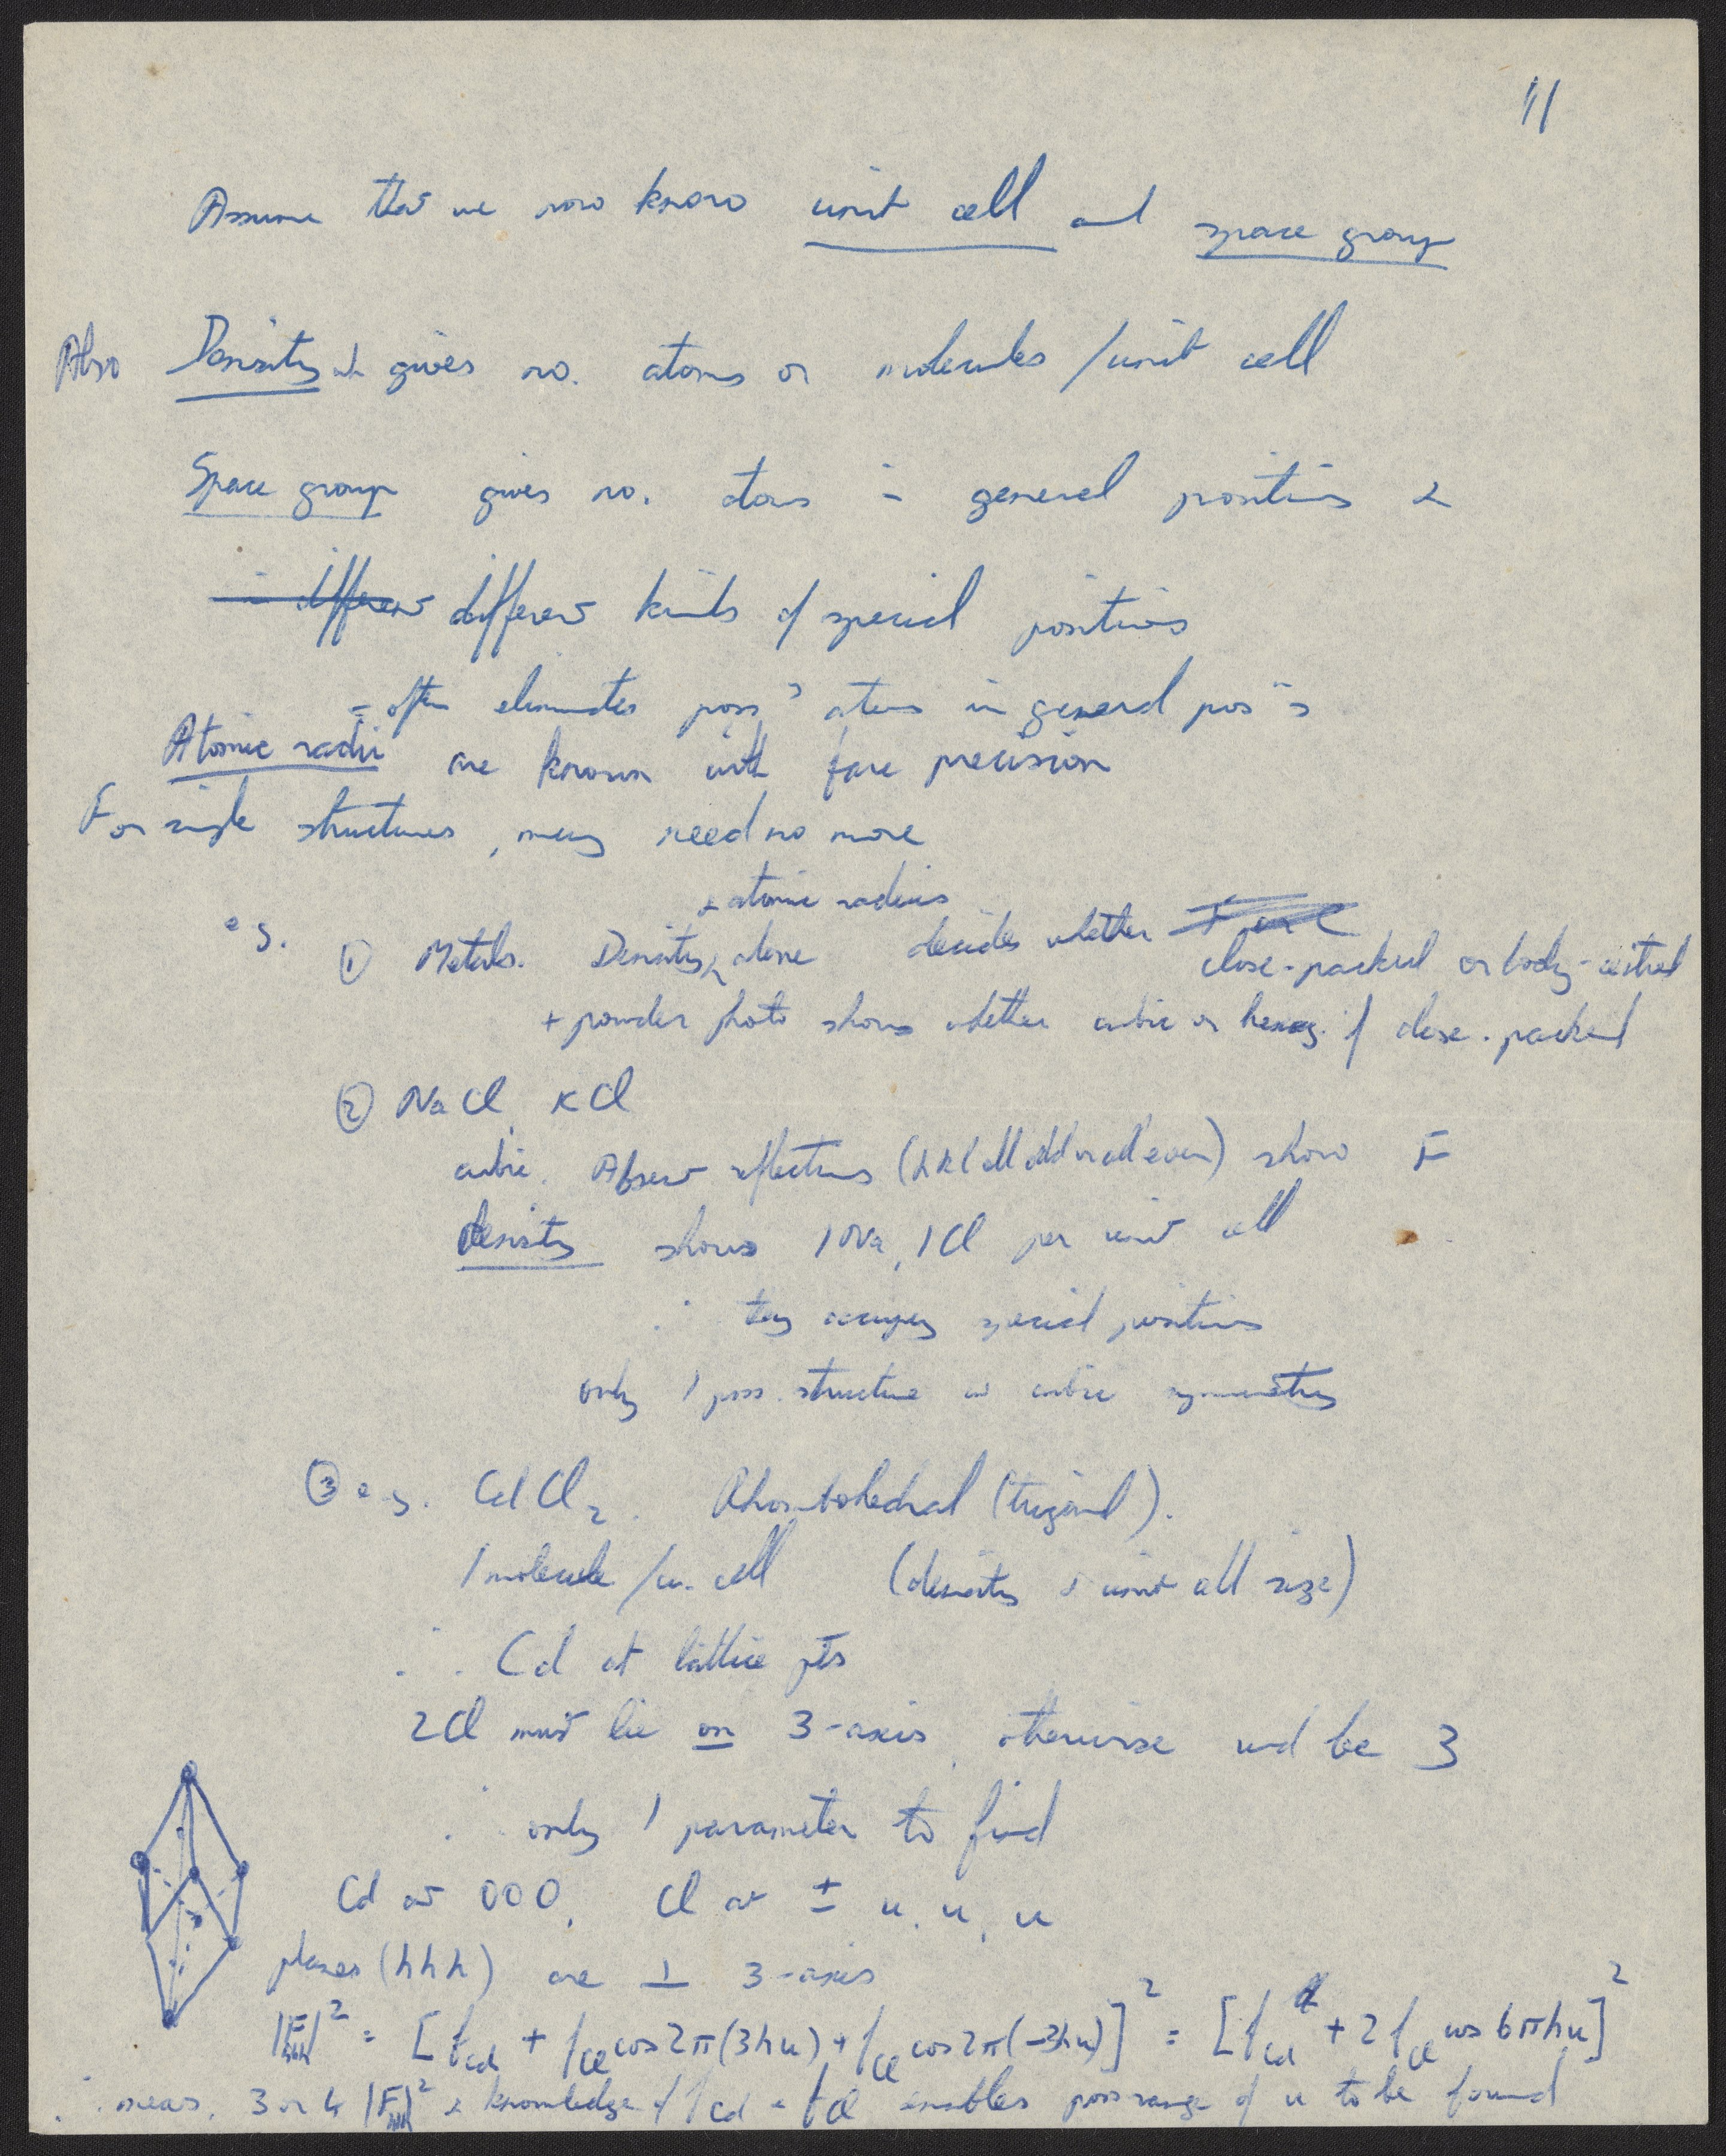 11
Assume that we now know unit cell and space group
Also Density wh gives no. atoms or molecules / unit cell
Space group gives no. atoms in general positions &
in different different kinds of special positions
= often eliminates poss^y atoms in general pos^ns
Atomic radii are known with fare precision
For simple structures, may need no more
+ atomic radius
e.g. ① Metals. Density alone decides whether close-packed or body-centred
+ powder photo shows whether cubic or hexag. if close-packed
② NaCl, KCl
cubic. Absent reflections (hkl all odd or all even) show F
density shows 1 Na, 1 Cl per unit cell
∴ they occupy special positions
only 1 poss. structure w cubic symmetry
③ e.g. CdCl₂. Rhombohedral (trigonal).
1 molecule / u. cell (density & unit cell size)
∴ Cd at lattice pts
2Cl must lie on 3-axis, otherwise wd be 3
∴ only 1 parameter to find
Cd at 000, Cl at ± u, u, u
planes (hhh) are ⊥ 3-axis
|F_hhh|² = [f_Cd + f_Cl cos2π(3hu) + f_Cl cos2π(-3hu)]² = [f_Cd + 2f_Cl cos 6πhu]²
∴ meas. 3 or 4 |F_hhh|² & knowledge of f_Cd & f_Cl enables poss range of u to be found